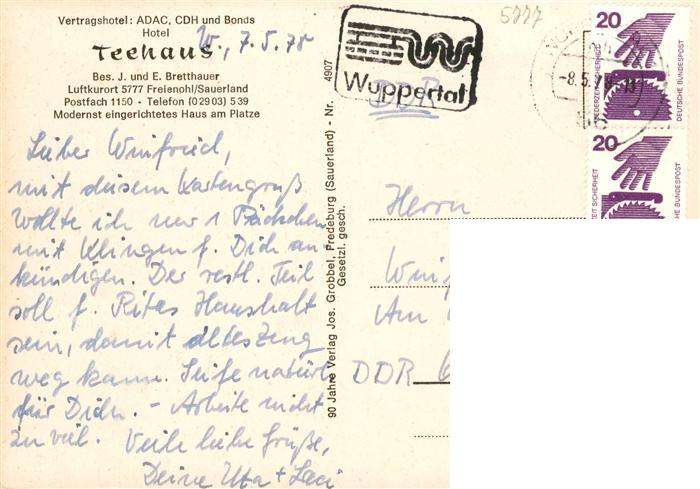 Vertragshotel: ADAC, CDH und Bonds
Hotel
Teehaus
Bes. J. und E. Bretthauer
Luftkurort 5777 Freienohl/Sauerland
Postfach 1150 - Telefon (02903) 539
Modernst eingerichtetes Haus am Platze
W., 7.5.78
Lieber Winfried,
mit diesem Kartengruß
wollte ich nur 1 Päckchen
mit Klingen f. Dich an-
kündigen. Der restl. Teil
soll f. Rites Haushalt
sein, damit altes Zeug
weg kann. Seife natürl.
für Dich. - Arbeite nicht
zu viel. Viele liebe Grüße,
Deine Uta +
90 Jahre Verlag Jos. Grobbel, Fredeburg (Sauerland) - Nr. 4907
Gesetzl. gesch.
5777
Wuppertal
DDR
-8.5.7
20
JEDERZEIT SICHERHEIT
DEUTSCHE BUNDESPOST
20
ZEIT SICHERHEIT
SCHE BUNDESPOST
Herrn
Win
Am
DDR 6